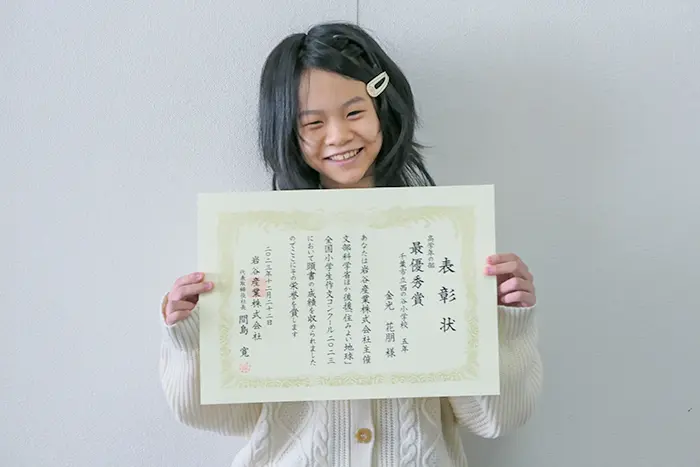 表彰状
高学年の部
最優秀賞
千葉市立西の谷小学校 五年
金光 花朋 様
あなたは岩谷産業株式会社主催
文部科学省ほか後援「住みよい地球」
全国小学生作文コンクール二〇二三
において頭書の成績を収められました
のでここにその栄誉を賞します
二〇二三年十二月二十二日
岩谷産業株式会社
代表取締役社長 間島 寛